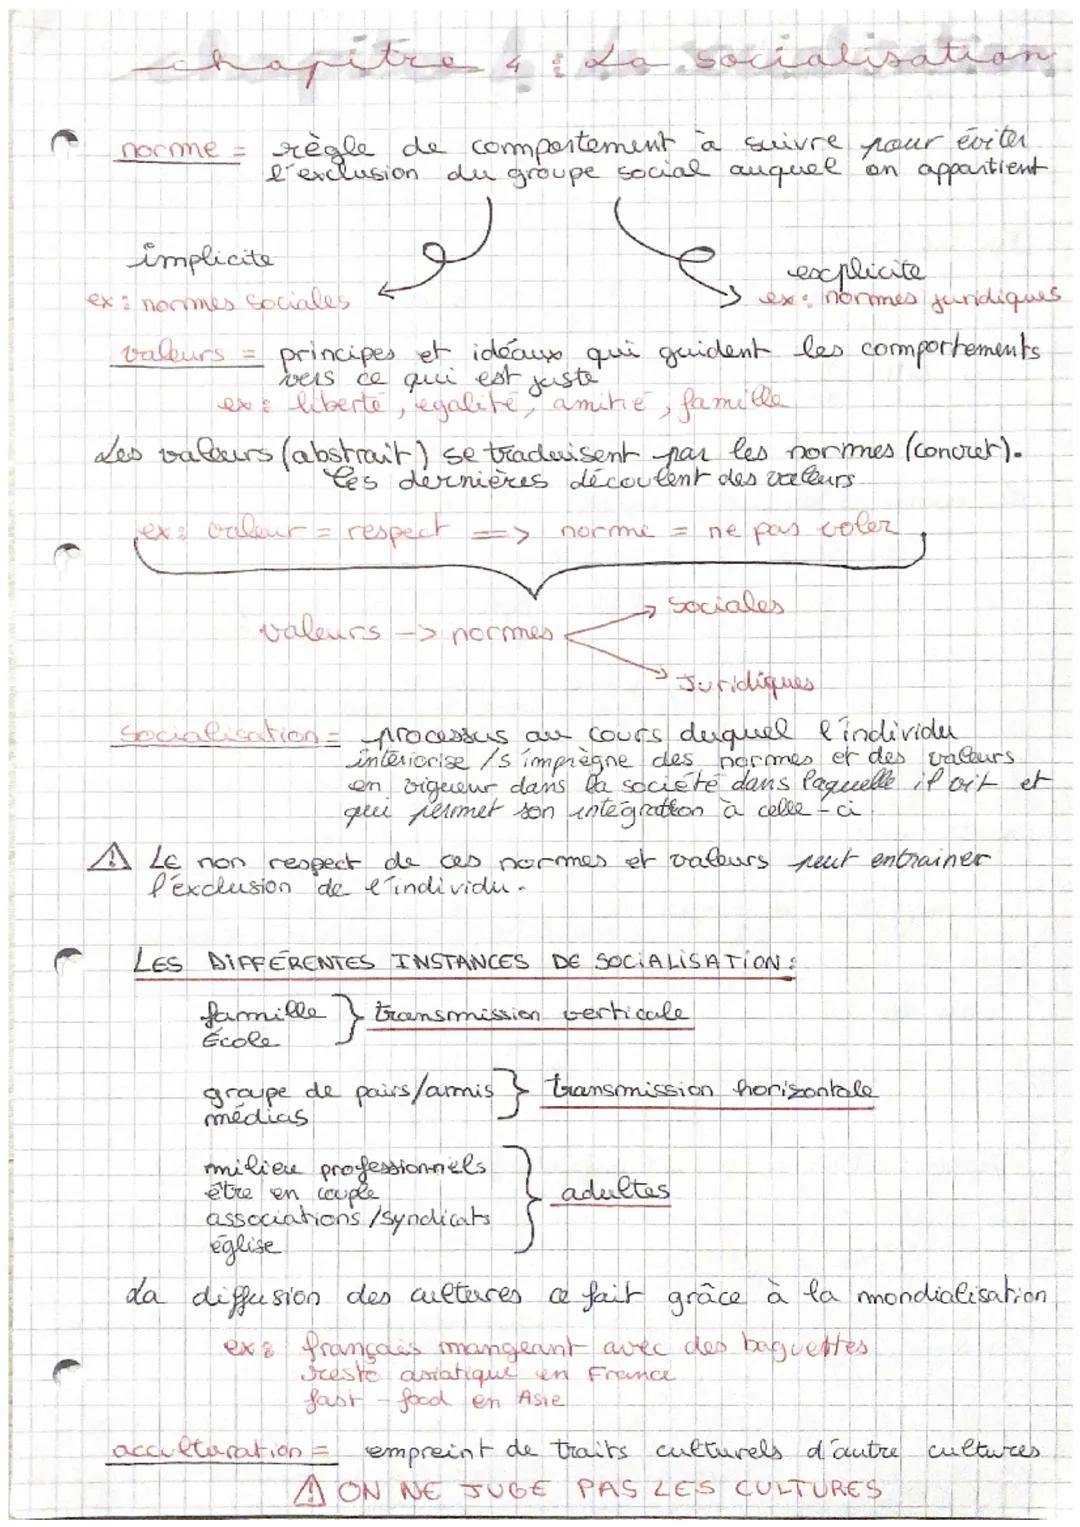 chapitre 4 : La socialisation
norme = règle de comportement à suivre pour éviter
l'exclusion du groupe social auquel on appartient
implicite
explicite
ex : normes sociales
ex : normes juridiques
valeurs = principes et idéaux qui guident les comportements
vers ce qui est juste
ex : liberté, égalité, amitié, famille
Les valeurs (abstrait) se traduisent par les normes (concret).
Ces dernières découlent des valeurs
ex : valeur = respect => norme = ne pas voler
sociales
valeurs -> normes
Juridiques
Socialisation = processus au cours duquel l'individu
intériorise / s'imprègne des normes et des valeurs
en vigueur dans la société dans laquelle il vit et
qui permet son intégration à celle-ci
⚠ Le non respect de ces normes et valeurs peut entrainer
l'exclusion de l'individu.
LES DIFFÉRENTES INSTANCES DE SOCIALISATION :
famille
École
transmission verticale
groupe de pairs/amis
médias
transmission horizontale
milieu professionnels
être en couple
associations / syndicats
église
adultes
La diffusion des cultures ce fait grâce à la mondialisation
ex : français mangeant avec des baguettes
resto asiatique en France
fast-food en Asie
acculturation = empreint de traits culturels d'autre cultures
⚠ ON NE JUGE PAS LES CULTURES